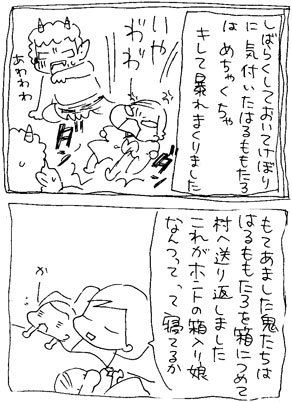 しばらくしておいてけぼり
に気付いたはるももたろ
はめちゃくちゃ
キレて暴れまくりました
いや
わわ
あわわわ
ダダ
ダダ
もてあました鬼たちは
はるももたろを箱につめて
村へ送り返しました
これがホントの箱入り娘
なんつってって寝てるか
か